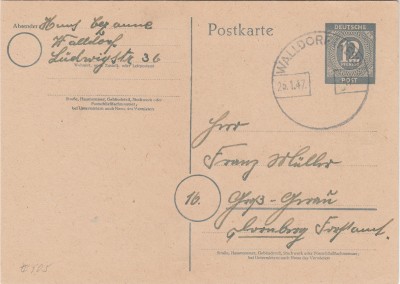 Absender:
Hans
Walldorf
Ludwigstr 36
Wohnort, auch Zustell- oder Leitpostamt
Straße, Hausnummer, Gebäudeteil, Stockwerk oder
Postschließfachnummer;
bei Untermietern auch Name des Vermieters
Postkarte
DEUTSCHE
12
PFENNIG
POST
WALLDORF
25.1.47
Herr
Franz Müller
16.
Groß-Gerau
Forstamt.
Straße, Hausnummer, Gebäudeteil, Stockwerk oder Postschließfachnummer;
bei Untermietern auch Name des Vermieters